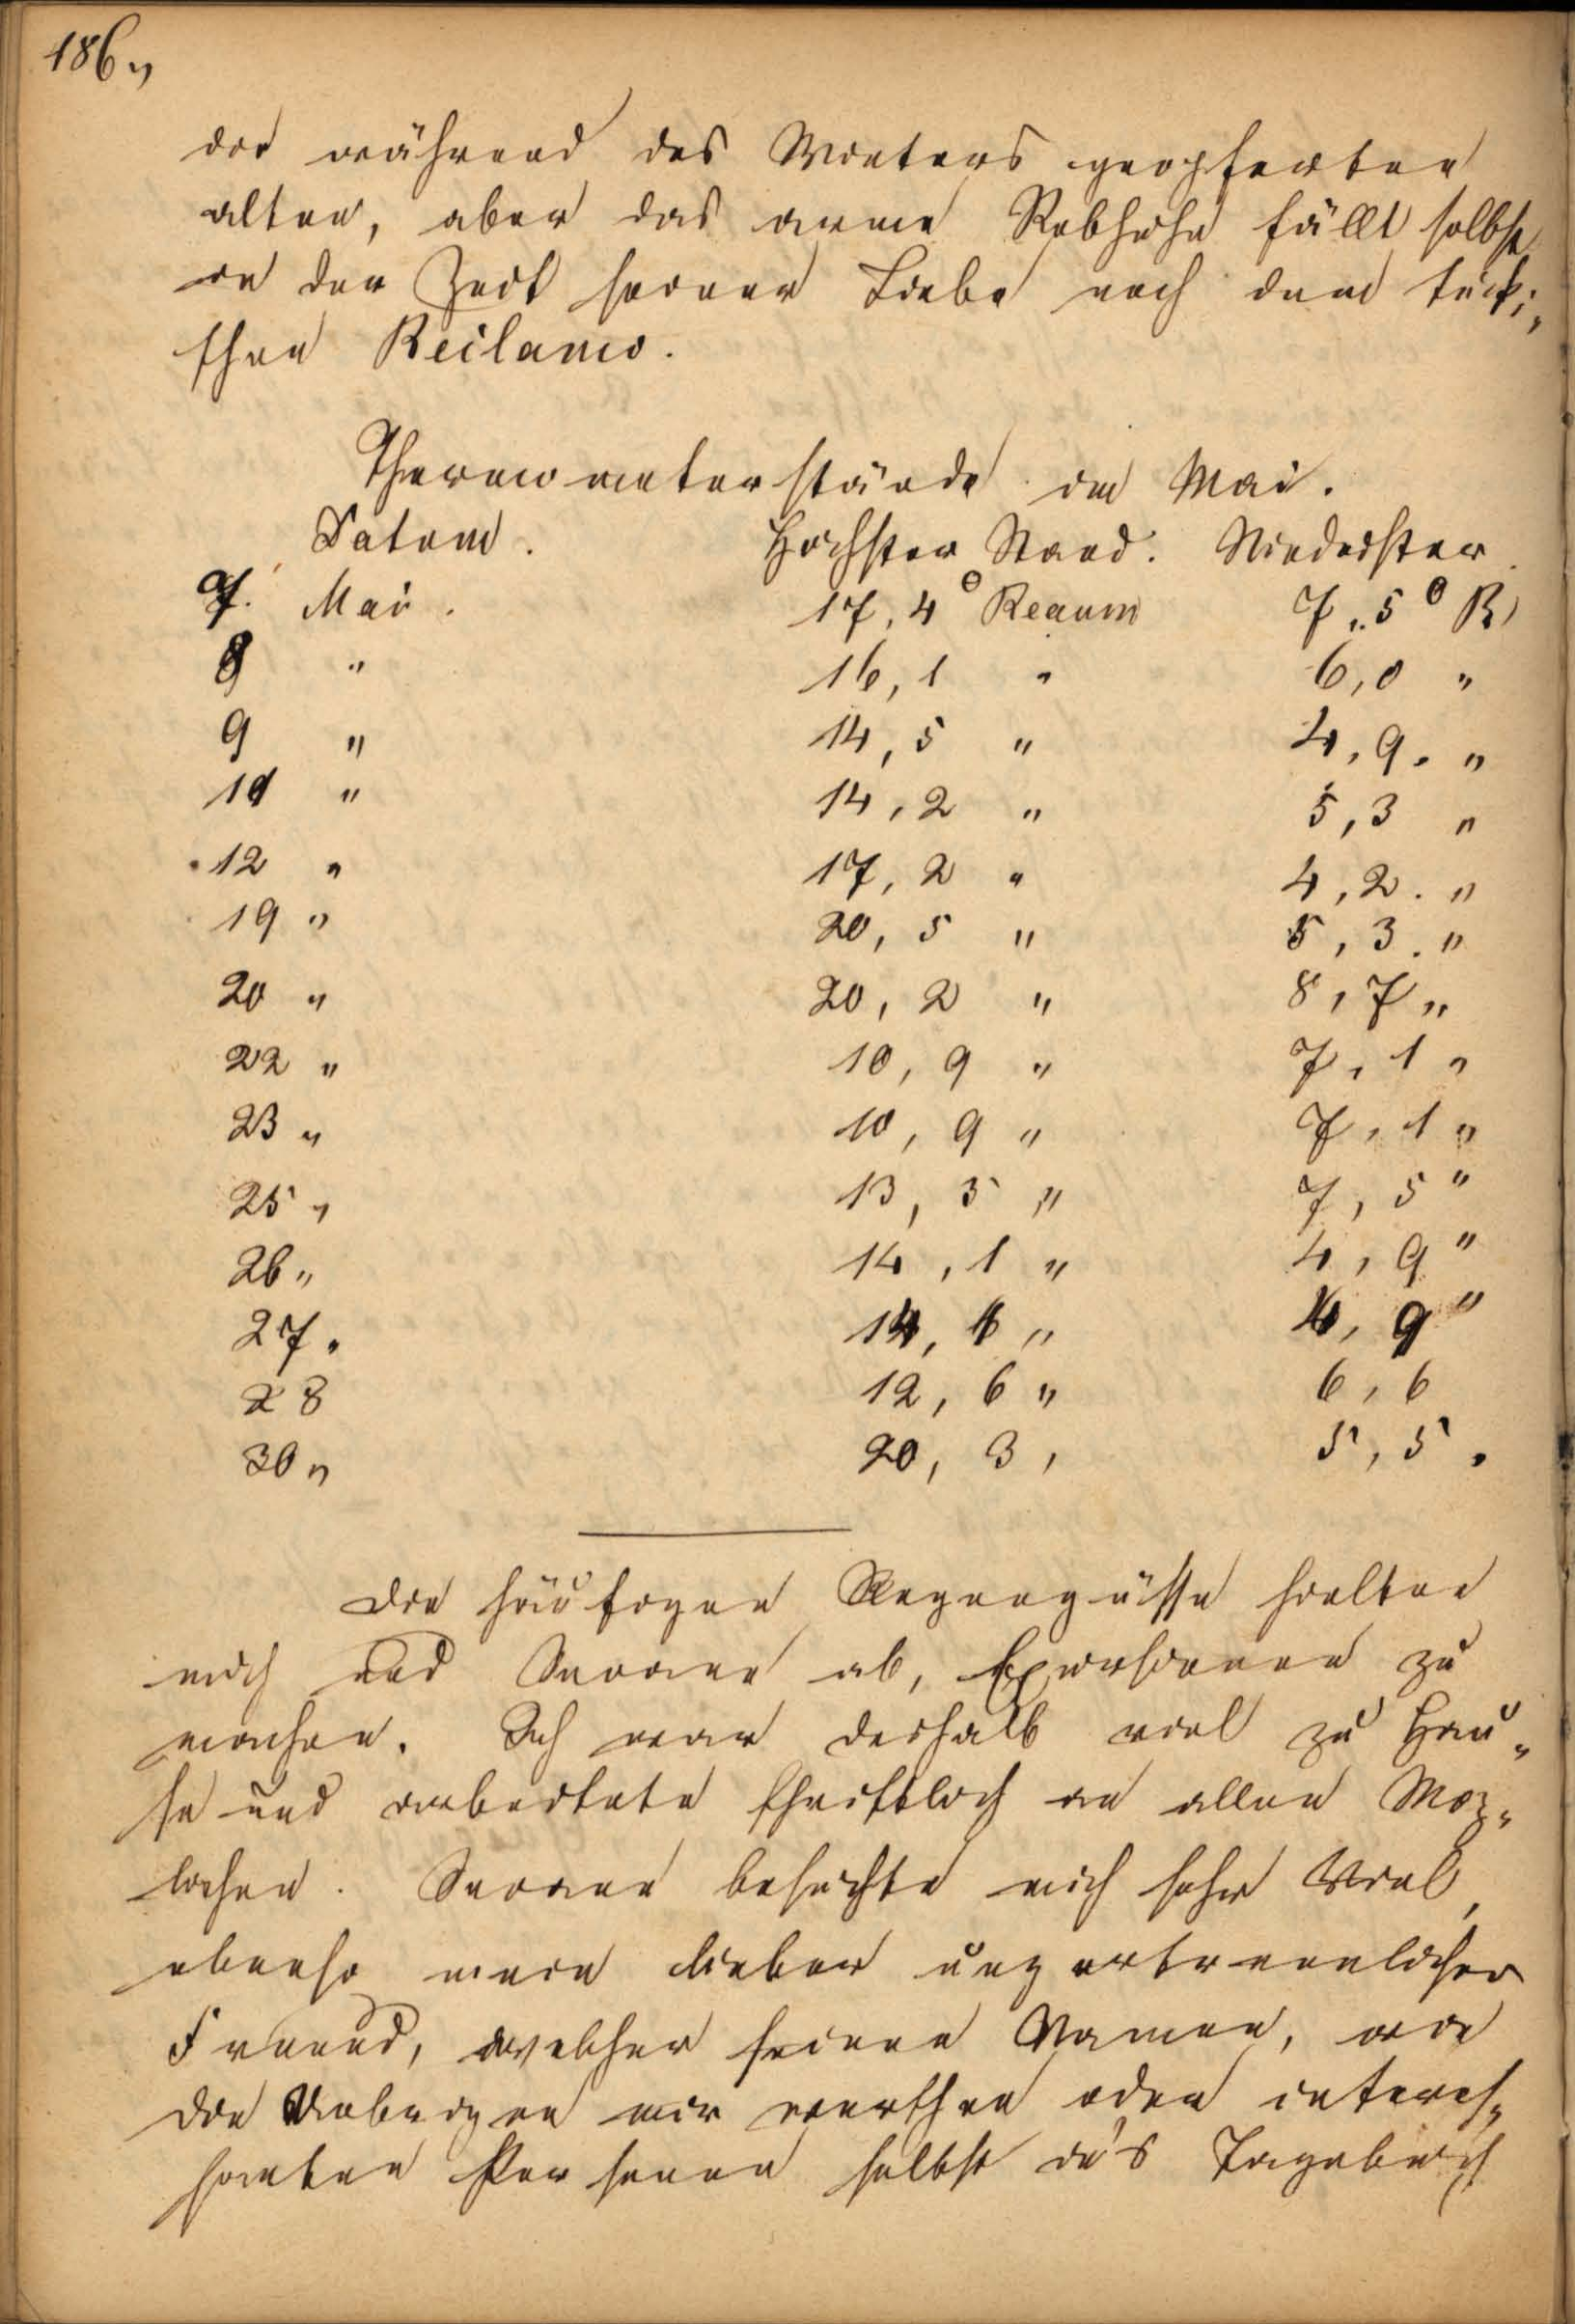 186„
die während des Winters geopferten
alten, aber das arme Rebhuhn fällt selbst
in der Zeit seiner Liebe noch dem tücki„
schen Reclamo.
Thermometerstände im Mai.
Datum. Höchster Stand. Niederster
7. Mai. 17,4° Reaum 7,5° R
8 " 16,1 " 6,0 "
9 " 14,5 " 4,9. "
10 " 14,2 " 5,3 "
12 " 17,2 " 4,2. "
19 " 20,5 " 5,3. "
20 " 20,2 " 8,7 "
22 " 10,9 " 7,1 "
23 " 10,9 " 7,1 "
25 " 13,5 " 7,5 "
26 " 14,1 " 4,9 "
27 " 14, " 4,9 "
28 12,6 " 6,6
30 " 20,3, 5,5.
Die häufigen Regengüsse hielten
mich und ab, Excursionen zu
machen. Ich war deshalb viel zu Hau„
se und arbeitete schriftlich an allen Mög„
lichen. besuchte mich sehr Viel,
ebenso mein lieber unzertrennlicher
Freund, welcher seinen Namen, wie
die Uebrigen mir werthen oder interes„
santen Personen selbst in's Tagebuch